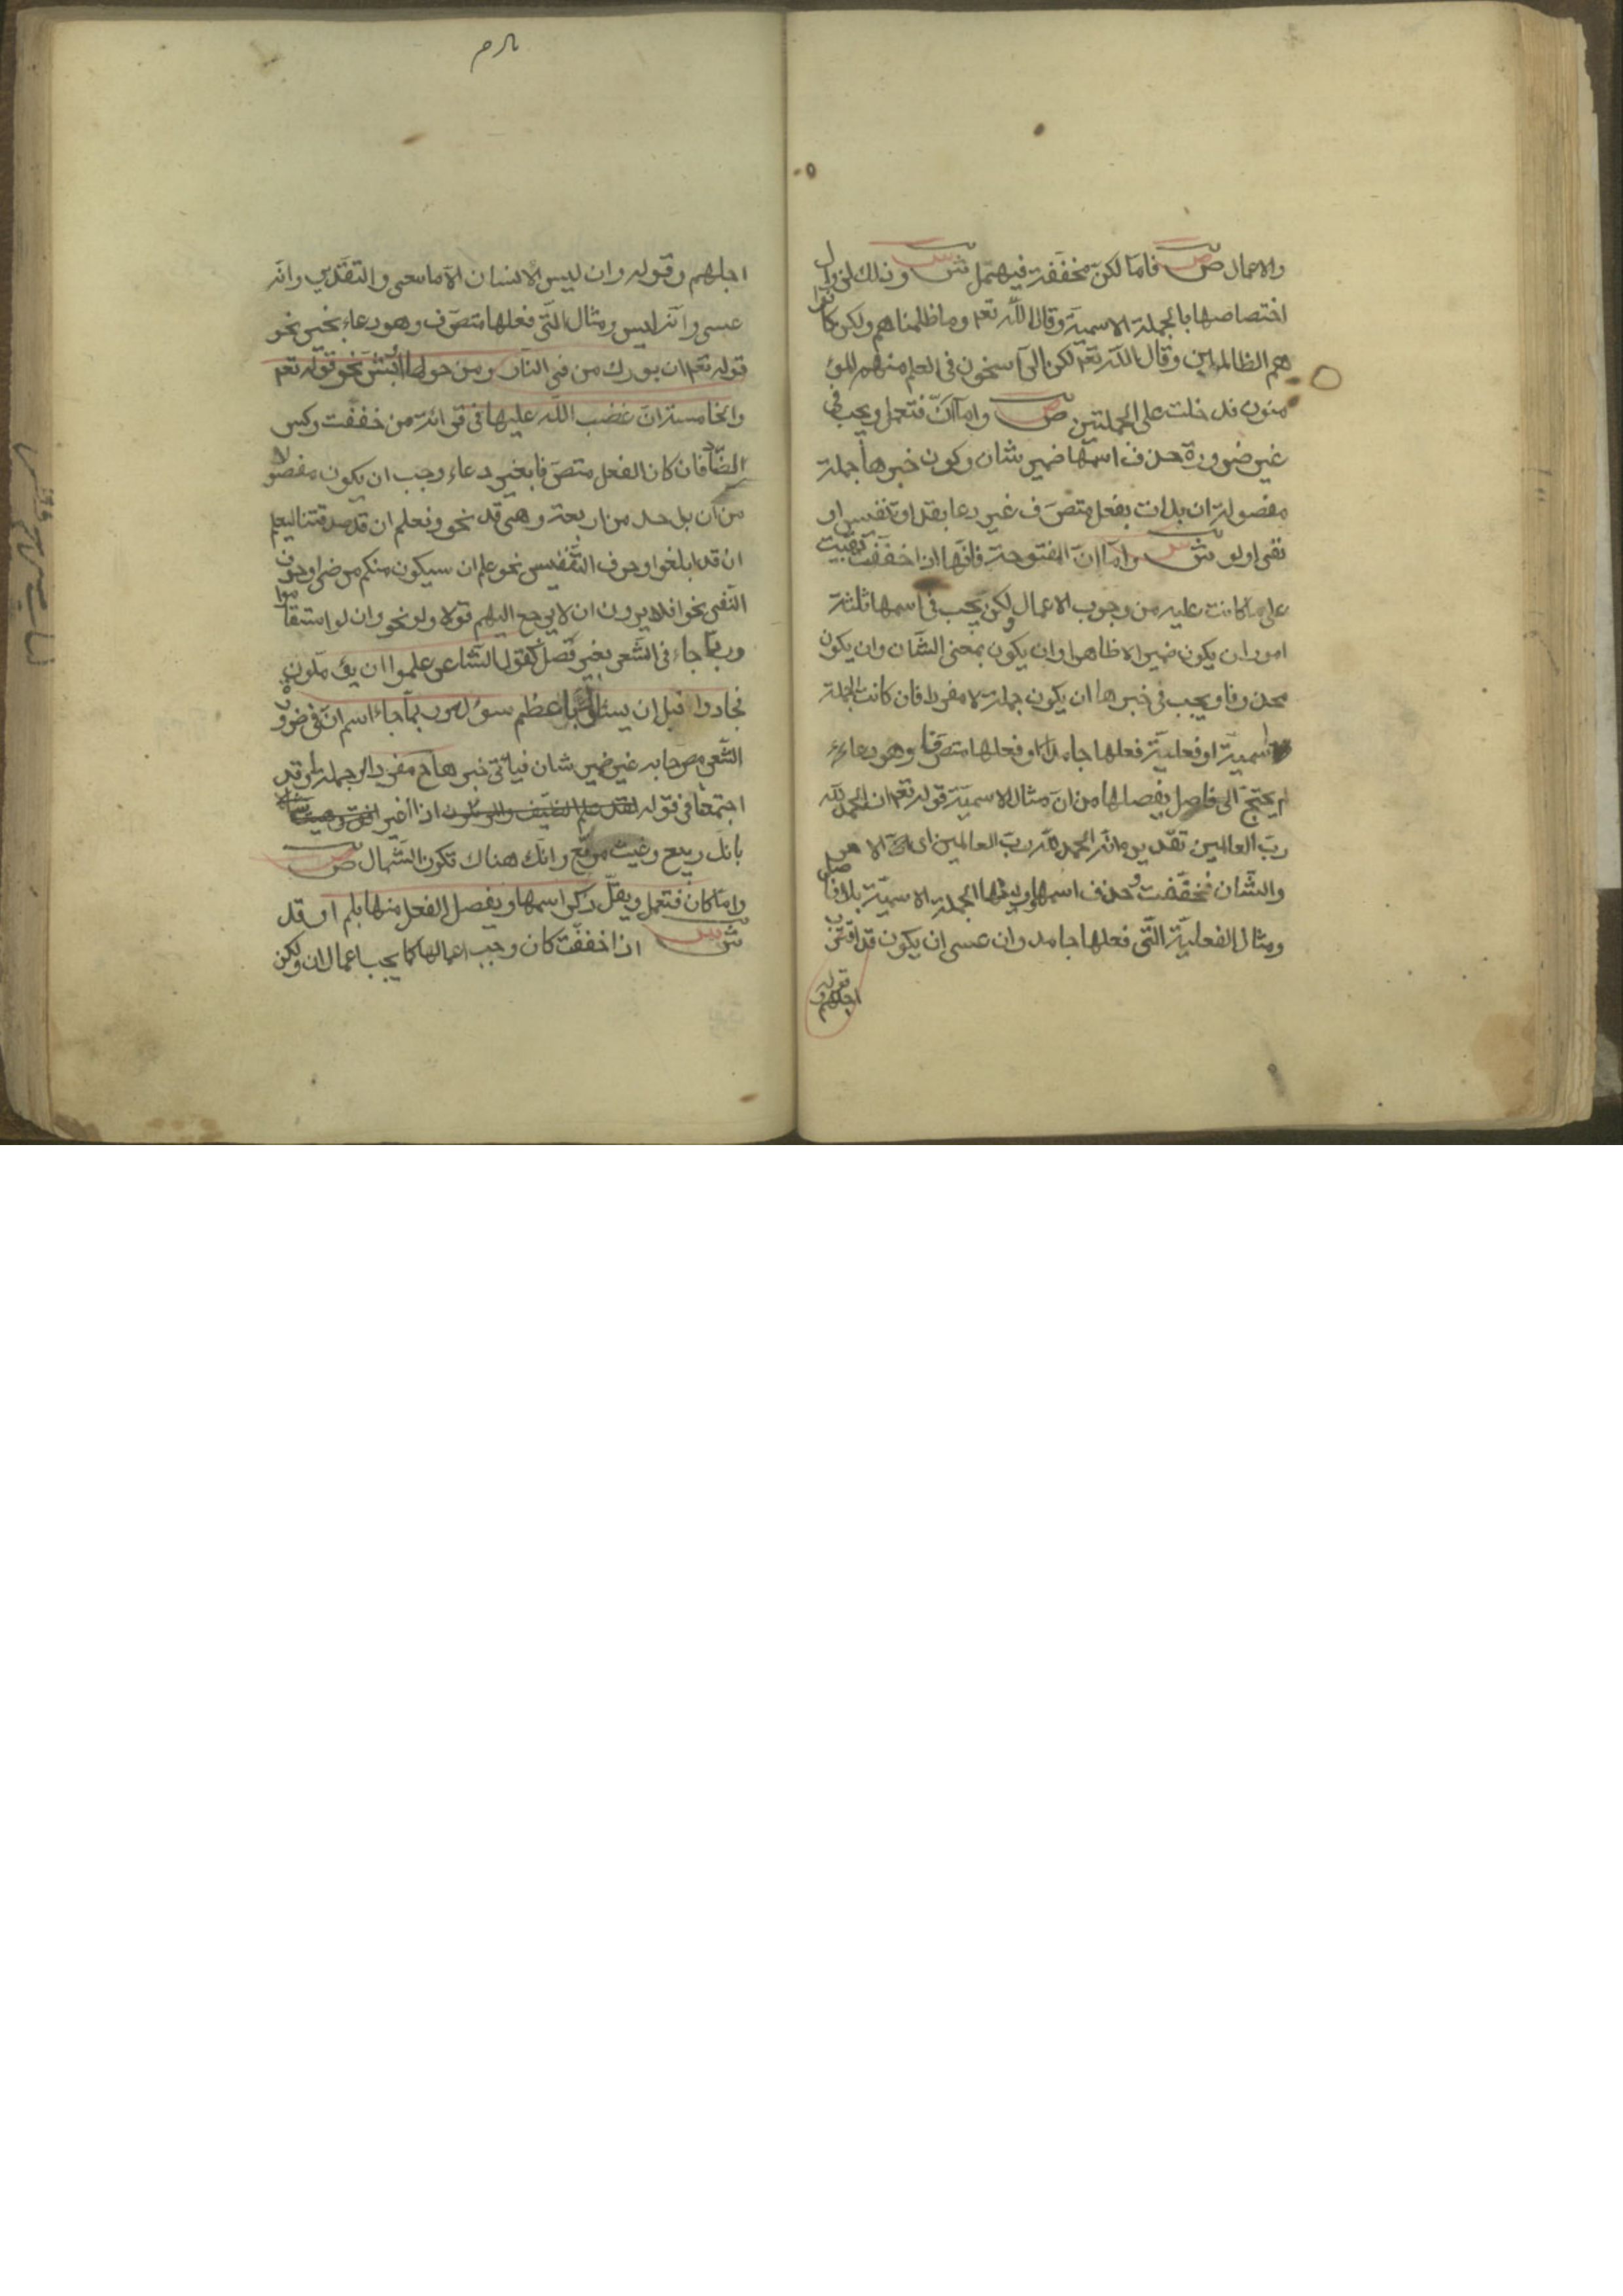 والاعمال ص فاما لكن مخففة فيهمل ش وذلك لزوال
اختصاصها بالجملة الاسمية وقال الله تعم وما ظلمناهم ولكن كانوا
هم الظالمين وقال الله تعم لكن الراسخون في العلم منهم والمؤ
منون فدخلت على الجملتين ص واما ان فتعمل ويجب في
غير ضرورة حذف اسمها ضمير شان وكون خبرها جملة
مفصولة ان بدات بفعل متصرف غير دعا بقد او تنفيس او
نفي او لو ش واما ان المفتوحة فانها اذا خففت بقيت
على ما كانت عليه من وجوب الاعمال ولكن يجب في اسمها ثلثة
امور ان يكون ضميرا لا ظاهرا وان يكون بمعنى الشان وان يكون
محذوفا ويجب في خبرها ان يكون جملة لا مفردا فان كانت الجملة
اسمية او فعلية فعلها جامد او فعلها متصرفا وهو دعاء
لم يحتج الى فاصل يفصلها من ان مثال الاسمية قوله تعم ان الحمد لله
رب العالمين تقديره انه الحمد لله رب العالمين اى الامر
والشان فخففت وحذف اسمها وليتها الجملة الاسمية بلا فاصل
ومثال الفعلية التي فعلها جامد وان عسى ان يكون قد اقترب
اجلهم وقوله
اجلهم وقوله وان ليس للانسان الا ما سعى والتقدير وانه
عسى وانه ليس ومثال التي فعلها متصرف وهو دعاء بخير نحو
قوله تعم ان بورك من في النار ومن حولها البشر نحو قوله تعم
والخامسة ان غضب الله عليها في قرائة من خففت وكسر
الضاد فان كان الفعل متصرفا بغير دعاء وجب ان يكون مفصولا
من ان بواحد من اربعة وهي قد نحو ونعلم ان قد صدقتنا ليعلم
ان قد ابلغوا وحرف التنفيس نحو علم ان سيكون منكم مرضى او حرف
النفي نحو افلا يرون ان لا يرجع اليهم قولا ولو نحو وان لو استقاموا
وربما جاء في الشعر بغير فصل كقول الشاعر علموا ان يؤملون
فجادوا قبل ان يسئلوا باعظم سؤل وربما جاء اسم ان في ضرورة
الشعر مصرحا به غير ضمير شان فياتي خبرها ح مفردا وجملة وقد
اجتمعا في قوله لقد علم الضيف والمرملون اذا اغبر افق وهبت شمالا
بانك ربيع وغيث مريع وانك هناك تكون الشمال ص
واما كان فتعمل ويقل ذكر اسمها ويفصل الفعل منها بلم او قد
ش اذا خففت كان وجب اعمالها كما يجب اعمال ان ولكن